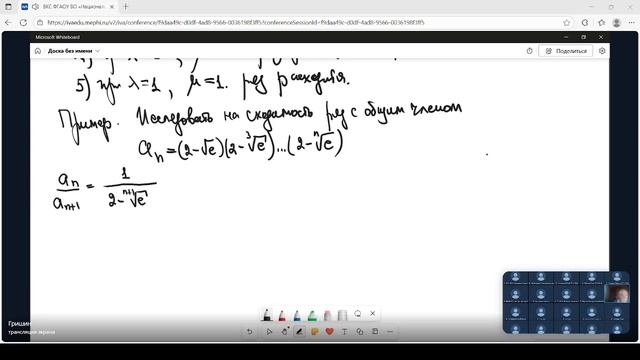 ВКС ФГАОУ ВО «Национал
https://ivaedu.mephi.ru/v2/iva/conference/f9daaf9c-d0df-4ad8-9566-0036198f3ff5?conferenceSessionId=f9daaf9c-d0df-4ad8-9566-0036198f3ff5
Microsoft Whiteboard
Доска без имени
Поделиться
5) при λ=1, μ=1. ряд расходится.
Пример. Исследовать на сходимость ряд с общим членом
aₙ = (2-√e)(2-³√e)...(2-ⁿ√e)
aₙ/aₙ₊₁ = 1/(2-ⁿ⁺¹√e)
Гришин
трансляция экрана